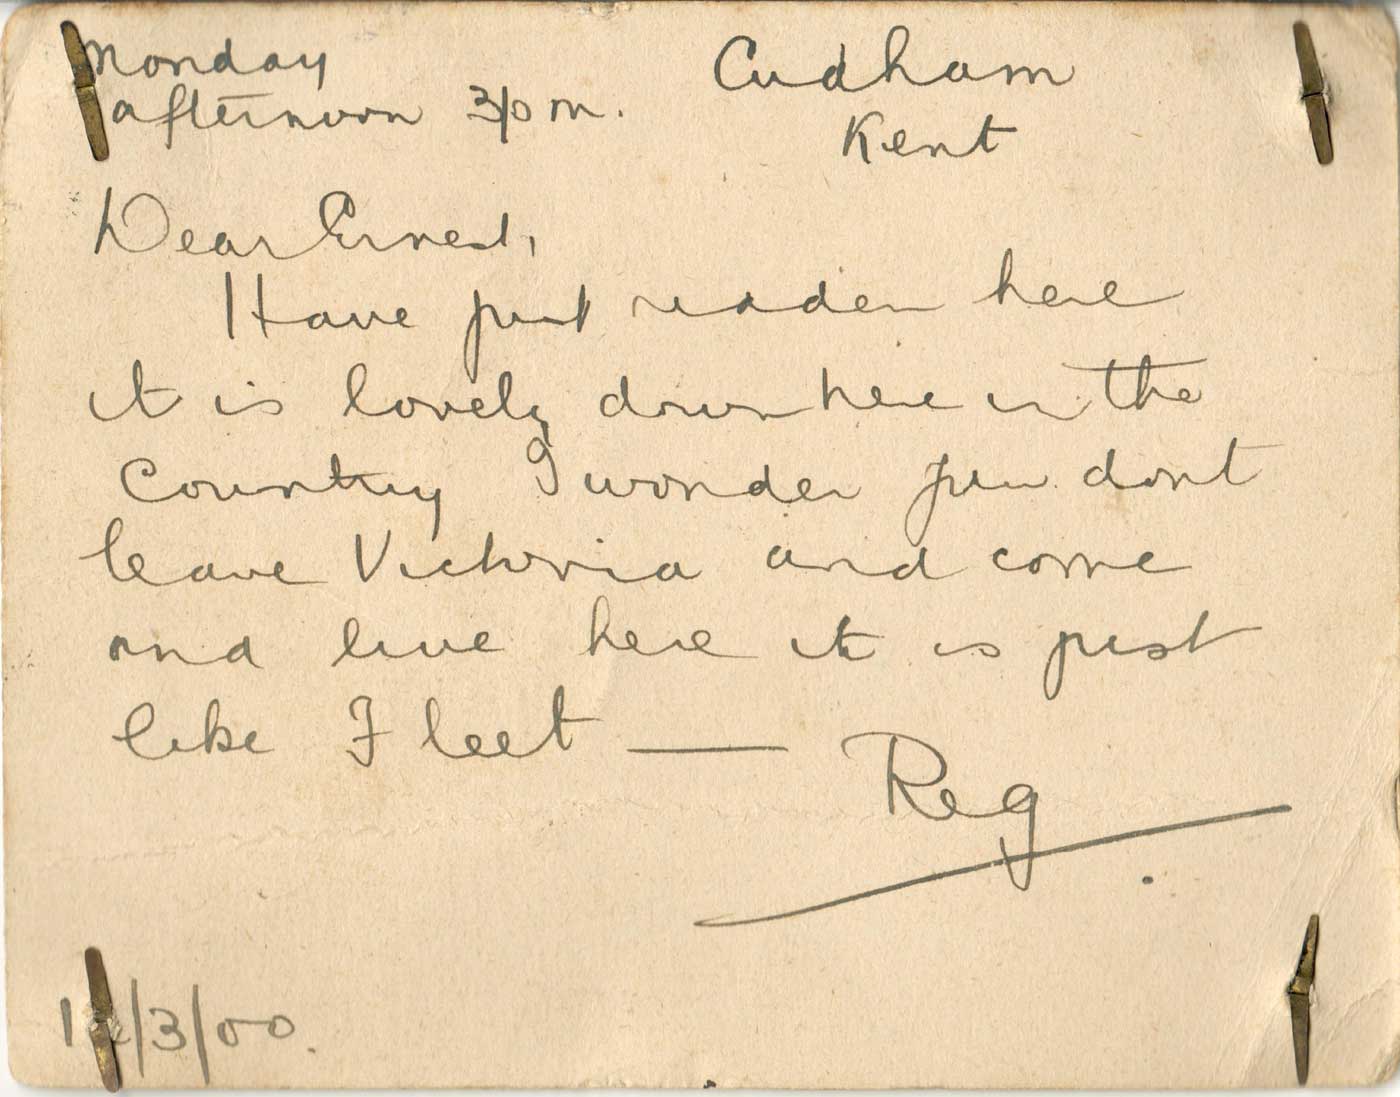 Monday
afternoon 3pm.
Cudham
Kent
Dear Ernest,
Have just ridden here
it is lovely down here in the
Country I wonder you dont
leave Victoria and come
and live here it is just
like Fleet —
Reg
/3/00.